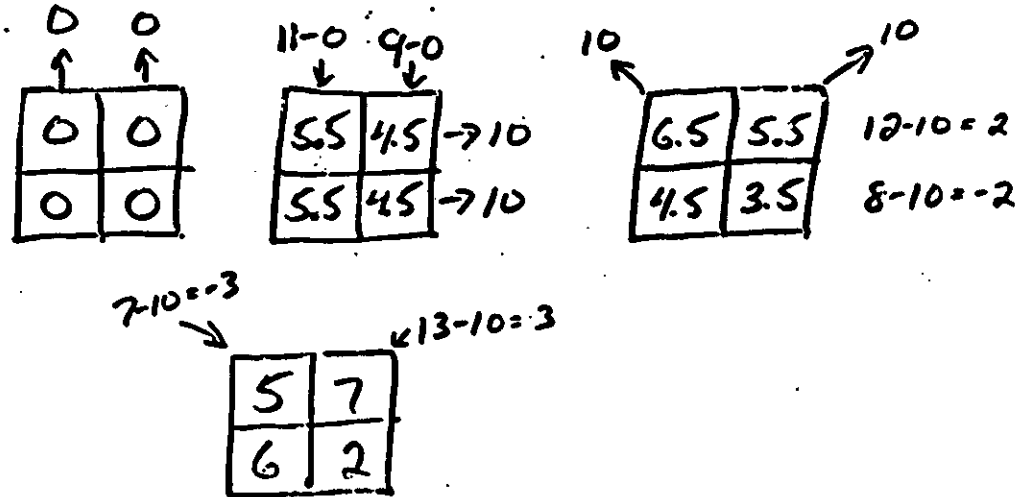 0 0
0 0
0 0
11-0 9-0
5.5 4.5 → 10
5.5 4.5 → 10
10 10
6.5 5.5 12-10 = 2
4.5 3.5 8-10 = -2
7-10 = -3 13-10 = 3
5 7
6 2